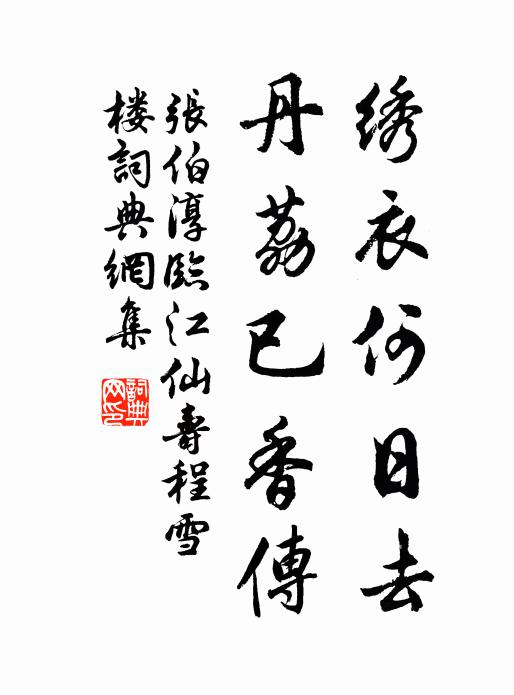 绣衣何日去
丹荔已香傳
張伯淳臨江仙壽程雪
楼詞典網集
詞典網印